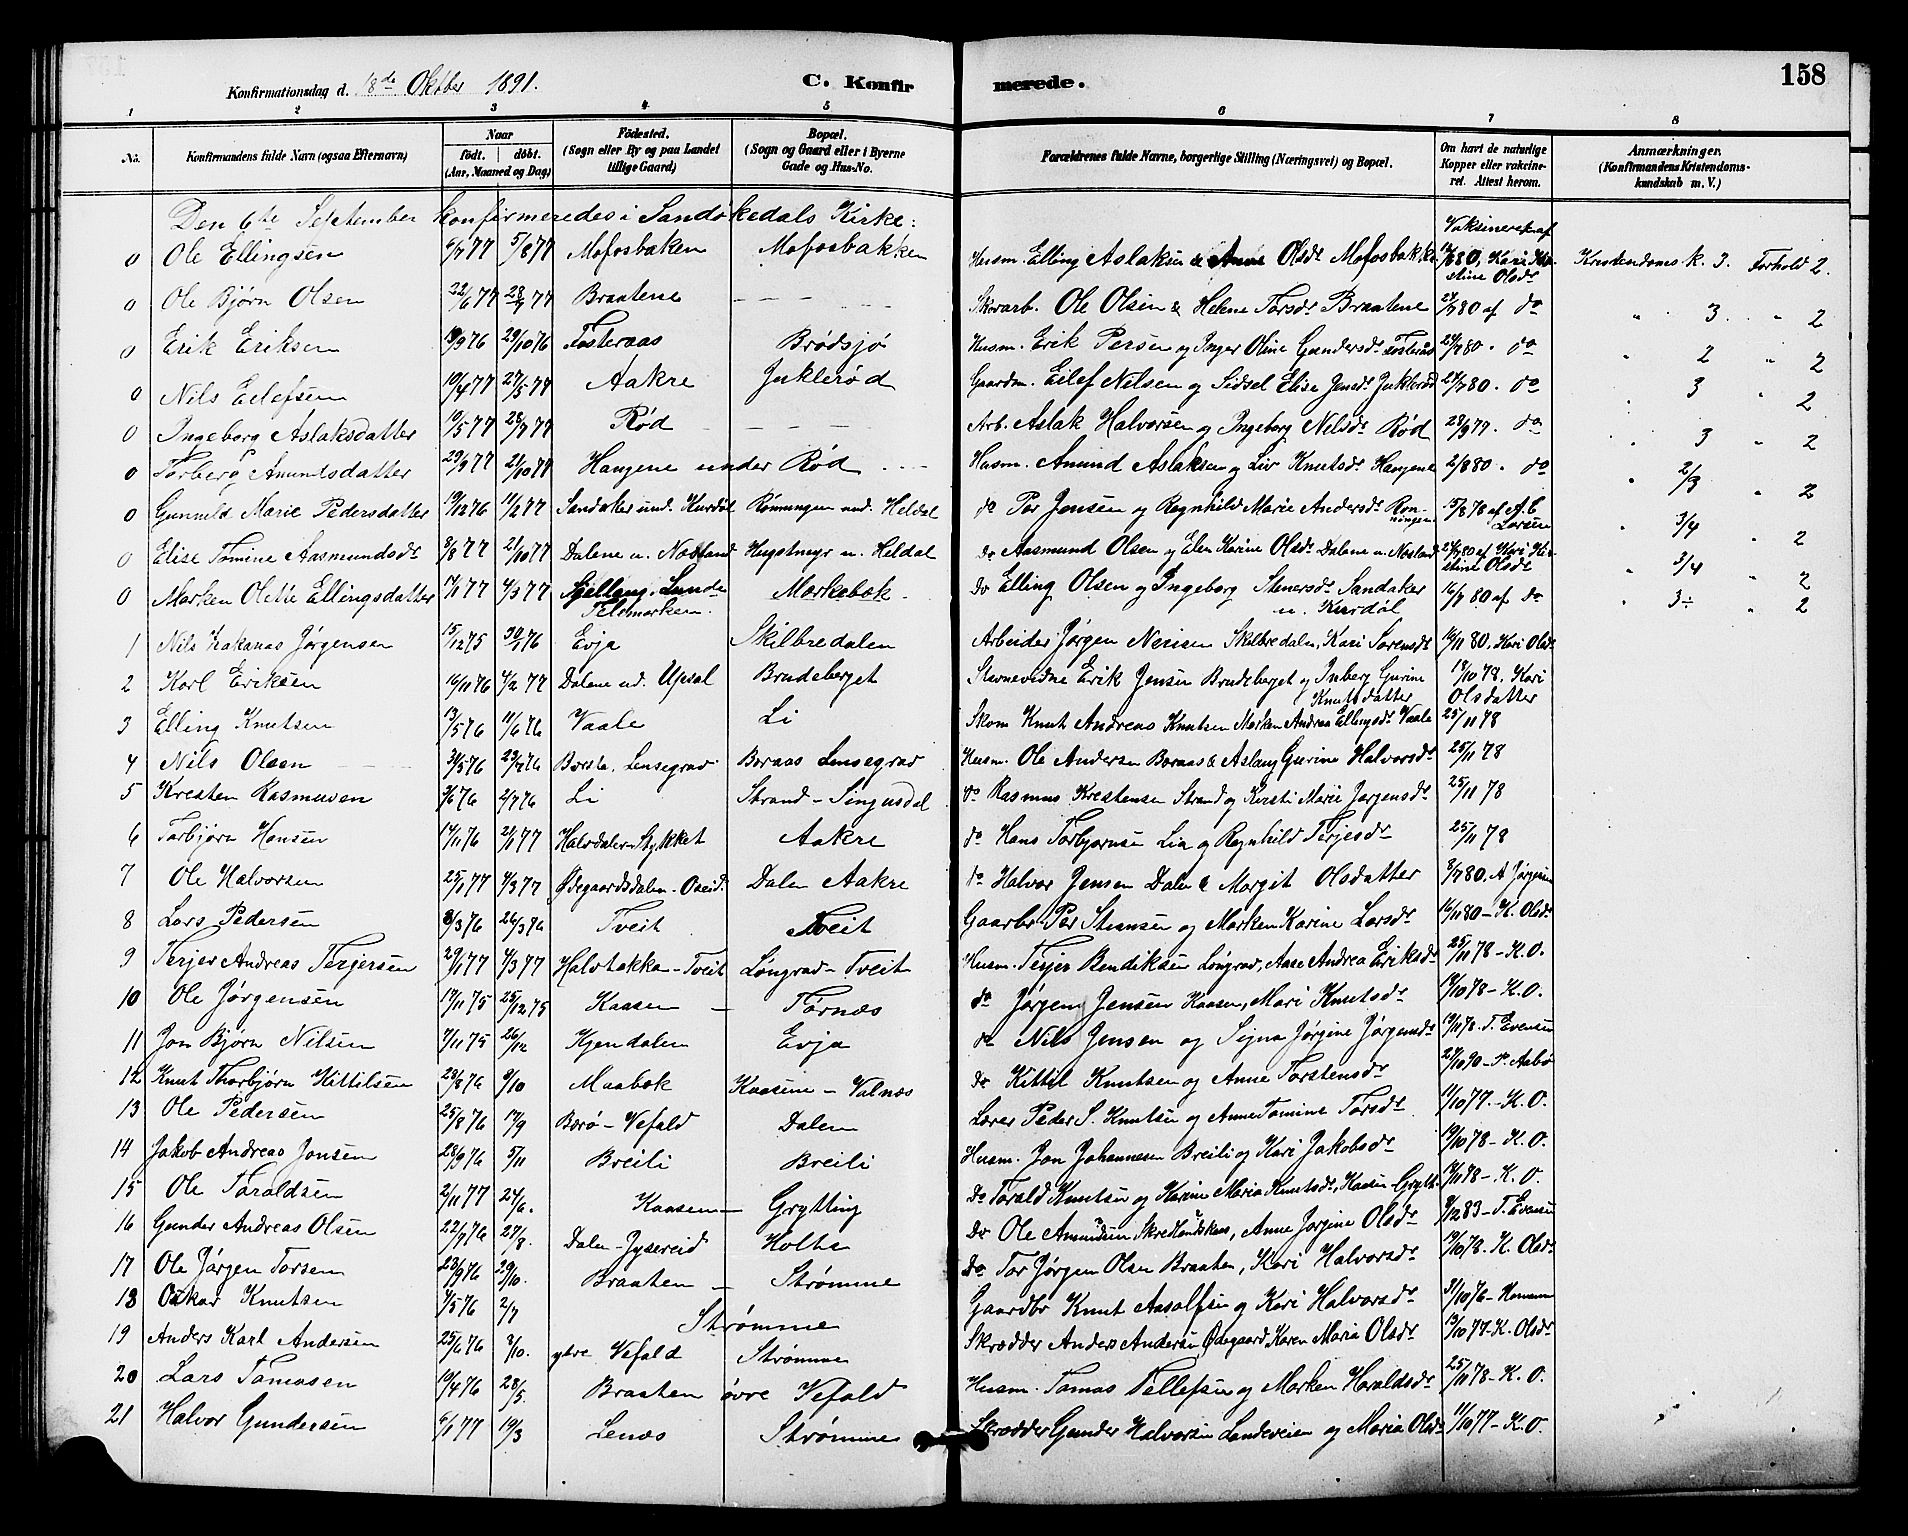 Konfirmationsdag d. 18de Oktber 1891.
C. Konfirmerede.
158
1 2 3 4 5 6 7 8
No. Konfirmandens fulde Navn (ogsaa Efternavn) Naar født. døbt. (Aar, Maaned og Dag) Födested. (Sogn eller By og paa Landet tillige Gaard) Bopæl. (Sogn og Gaard eller i Byerne Gade og Hus-No. Forældrenes fulde Navne, borgerlige Stilling (Næringsvei) og Bopæl. Om havt de naturlige Kopper eller vaksineret. Attest herom. Anmærkninger. (Konfirmandens Kristendomskundskab m. V.)
Den 6te September konfirmeredes i Sandøkedals Kirke: Vaksineret af
0 Ole Ellingsen 6/7 77 5/8 77 Mofosbaken Mofosbakken Husm. Elling Aslaksen & Anne Olsdr Mofosbakke 12/6 80, Kari Kirstine Olsdr Kristendoms k. 3. Forhold 2.
0 Ole Bjørn Olsen 22/6 77 28/7 77 Braatene – – – – Skovarb. Ole Olsen & Helene Torsdr Braatene 24/7 80 af do " 3. " 2
0 Erik Eriksen 19/9 76 29/10 76 Fosteraas Brødsjø Husm. Erik Persen og Inger Oline Gundersdr Fosteraas 24/7 80. do " 2 " 2
0 Nils Eilefsen 10/4 77 27/5 77 Aakre Juklerød Gaardm. Eilef Nilsen og Sidsel Elise Jensdr Juklerød 24/7 80. do " 3 " 2
0 Ingeborg Aslaksdatter 10/5 77 28/7 77 Rød – – – Arb. Aslak Halvorsen og Ingeborg Nilsdr Rød 28/9 77. do " 3 " 2
0 Torberg Amundsdatter 29/9 77 21/10 77 Haugene under Rød – – – Husm. Amund Aslaksen og Liv Knutsdr Haugene 2/8 80. do " 2/3 " 2
0 Gunnild Marie Pedersdatter 19/12 76 11/2 77 Sandaker und. Kurdøl Rønningen und. Heldal do Per Jensen og Ragnhild Marie Andersdr Rønningen 15/8 78 af A. C Larsen " 3/4 " 2
0 Elise Tomine Aasmundsdr 8/8 77 21/10 77 Dalene u. Næsland Hugstmyr u. Heldal do Aasmund Olsen og Elen Karine Olsdr Dalene u. Næsland 24/7 80 af Kari Kirstine Olsdr " 3/4 " 2
0 Marken Olette Ellingsdatter 17/1 77 4/3 77 Lunde Telemarken. Markebæk do Elling Olsen og Ingeborg Stenersdr Sandaker u. Kurdøl 16/7 80 af do " 3÷ " 2
1 Nils Zakarias Jørgensen 15/12 75 30/1 76 Evja Skilbredalen Arbeider Jørgen Nerisen Skilbredalen, Kari Sørensdr 16/11 80. Kari Olsdr
2 Karl Eriksen 16/11 76 4/2 77 Dalene ud. Upsal Brudeberget Stevnevidne Erik Jensen Brudeberget og Inberg Gurine Knutsdatter 18/10 78. Kari Olsdatter
3 Elling Knutsen 13/5 76 11/6 76 Vaale Li Skom Knut Andreas Knutsen Marken Andrea Ellingsdr Vaale 25/11 78
4 Nils Olsen 31/5 76 23/7 76 Barste. Lensegrav Boraas Lensegrav Husm. Ole Andersen Boraas & Aslaug Gurine Halvorsdr 25/11 78
5 Kresten Rasmusen 3/6 76 2/7 76 Li Strand – Singusdal do Rasmus Krestensen Strand og Kirsti Marie Jørgensdr 25/11 78
6 Torbjørn Hansen 14/11 76 21/1 77 Halvdalen Stykket Aakre do Hans Torbjørnsen Lia og Ragnhild Terjesdr 25/11 78
7 Ole Halvorsen 25/1 77 4/3 77 Ødegaardsdalen – Oseid. Dalen Aakre do Halvor Jensen Dalen & Margit Olsdatter 8/7 80. A Jørgensen
8 Lars Pedersen 8/3 76 26/3 76 Tveit Tveit Gaarbr Per Stiansen og Marken Karine Larsdr 16/11 80 – K. Olsdr
9 Terjer Andreas Terjersen 29/1 77 4/3 77 Halvtakka – Tveit Løngrav – Tveit Husm. Terjer Bendiksen Løngrav, Aase Andrea Eriksdr 25/11 78 – K. O.
10 Ole Jørgensen 17/11 75 25/12 75 Kaasen – Tørnæs do Jørgen Jensen Kaasen, Mari Knutsdr 19/10 78 – K. O.
11 Jon Bjørn Nilsen 7/11 75 26/12 Kjendalen Evja do Nils Jensen og Signa Jørgine Jørgensdr 19/11 78. T. Evensen
12 Knut Thorbjørn Kittilsen 28/8 76 8/10 Maabæk Kaasene – Valnæs do Kittil Knutsen og Anne Torstensdr 27/10 90 – P. Aabø
13 Ole Pedersen 25/8 76 17/9 Barø – Vefald Dalen Lærer Peder S. Knutsen og Anne Tomine Torsdr 11/10 77. – K. O.
14 Jakob Andreas Jonsen 28/9 76 5/11 Breili Breili Husm. Jon Johannesen Breili og Kari Jakobsdr 19/10 78 – K. O.
15 Ole Toraldsen 2/11 77 24/6. Kaasen – Grytting Do Torald Knutsen og Karine Maria Knutsdr, Kaasen – Grytt. 19/11 78 – K. O.
16 Gunder Andreas Olsen 22/7 76 27/8. Dalen – Jysereid Holte Do Ole Amundsen Skredlandskaas, Anne Jørgine Olsdr 9/12 83 – T. Evensen
17 Ole Jørgen Torsen 28/9 76 29/10. Braaten – Strømme Do Tor Jørgen Olsen Braaten, Kari Halvorsdr 19/10 78. K. Olsdr
18 Oskar Knutsen 7/5 76 2/7 Strømme Gaardbr Knut Aasolfsen og Kari Halvorsdr 31/10 76 – Homann
19 Anders Karl Andersen 25/6 76 3/10. ytre Vefald Strømme Skrædder Anders Andersen Ødegaard, Karen Maria Olsdr 13/10 77 – K. Olsdr
20 Lars Tomasen 10/4 76 28/5. Braaten øvre Vefald Husm. Tomas Tellefsen og Marken Haraldsdr 25/11 78 – K. O.
21 Halvor Gundersen 6/1 77 19/3 Lenæs Strømme Skrædder Gunder Halvorsen Landeveien og Maria Olsdr 11/10 77 – K. O.